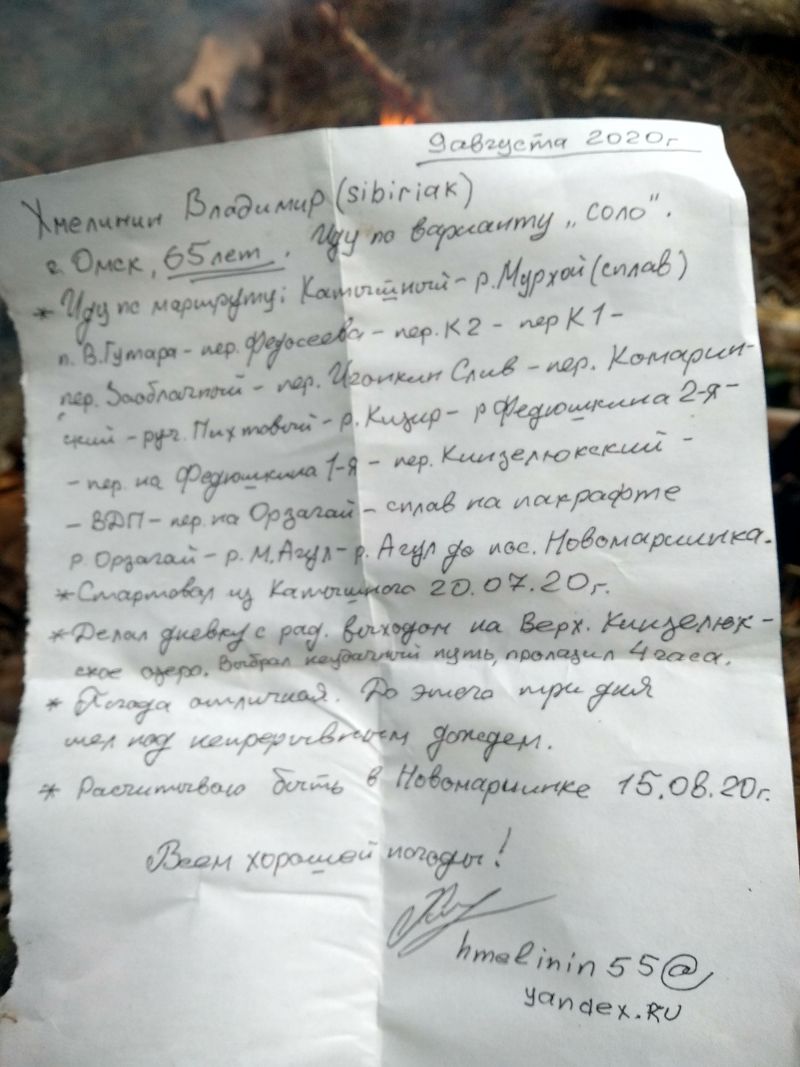 9 августа 2020г
Хмелинин Владимир (sibiriak)
г. Омск, 65 лет. Иду по варианту „соло".
* Иду по маршруту: Катышный - р. Мурхой (сплав)
п. В.Гутара - пер. Федосеева - пер. К2 - пер К1 -
пер. Заоблачный - пер. Игонкин Слив - пер. Комарин-
ский - руч. Пихтовый - р. Кизир - р Федюшкина 2-я -
- пер. на Федюшкина 1-я - пер. Кинзелюкский -
- ВДП - пер. на Орзагай - сплав на пакрафте
р Орзагай - р. М.Агул - р. Агул до пос. Новомариинка.
* Стартовал из Катышного 20.07.20г.
* Делал дневку с рад. выходом на Верх. Кинзелюк-
ское озеро. Выбрал неудачный путь, пролазил 4 часа.
* Погода отличная. До этого три дня
шел под непрерывным дождем.
* Расчитываю быть в Новомариинке 15.08.20г.
Всем хорошей погоды!
hmelinin55@
yandex.RU